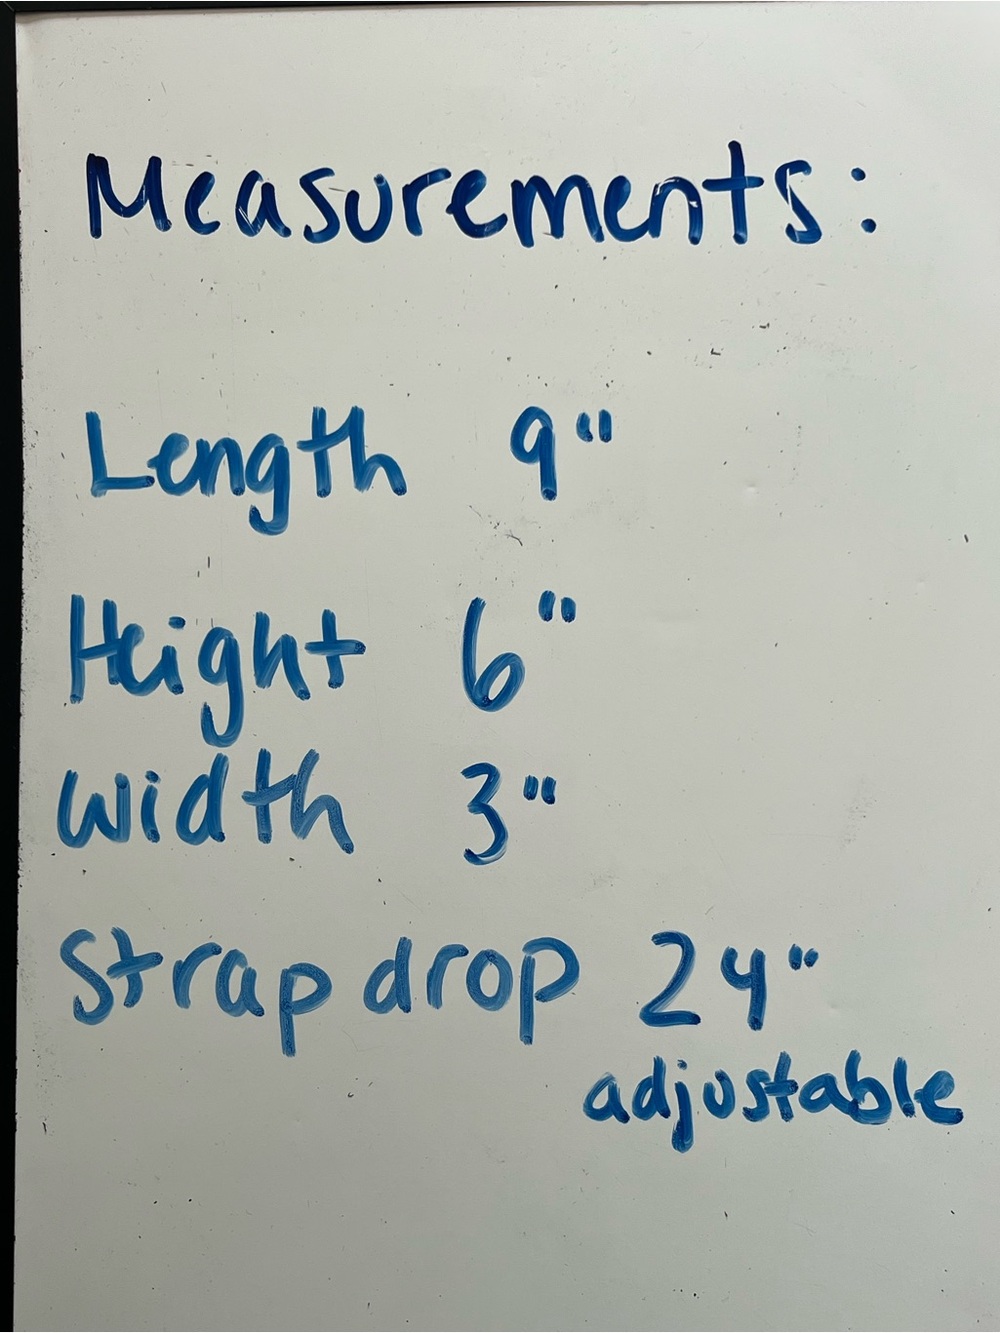 Measurements:
Length 9"
Height 6"
Width 3"
Strap drop 24"
adjustable